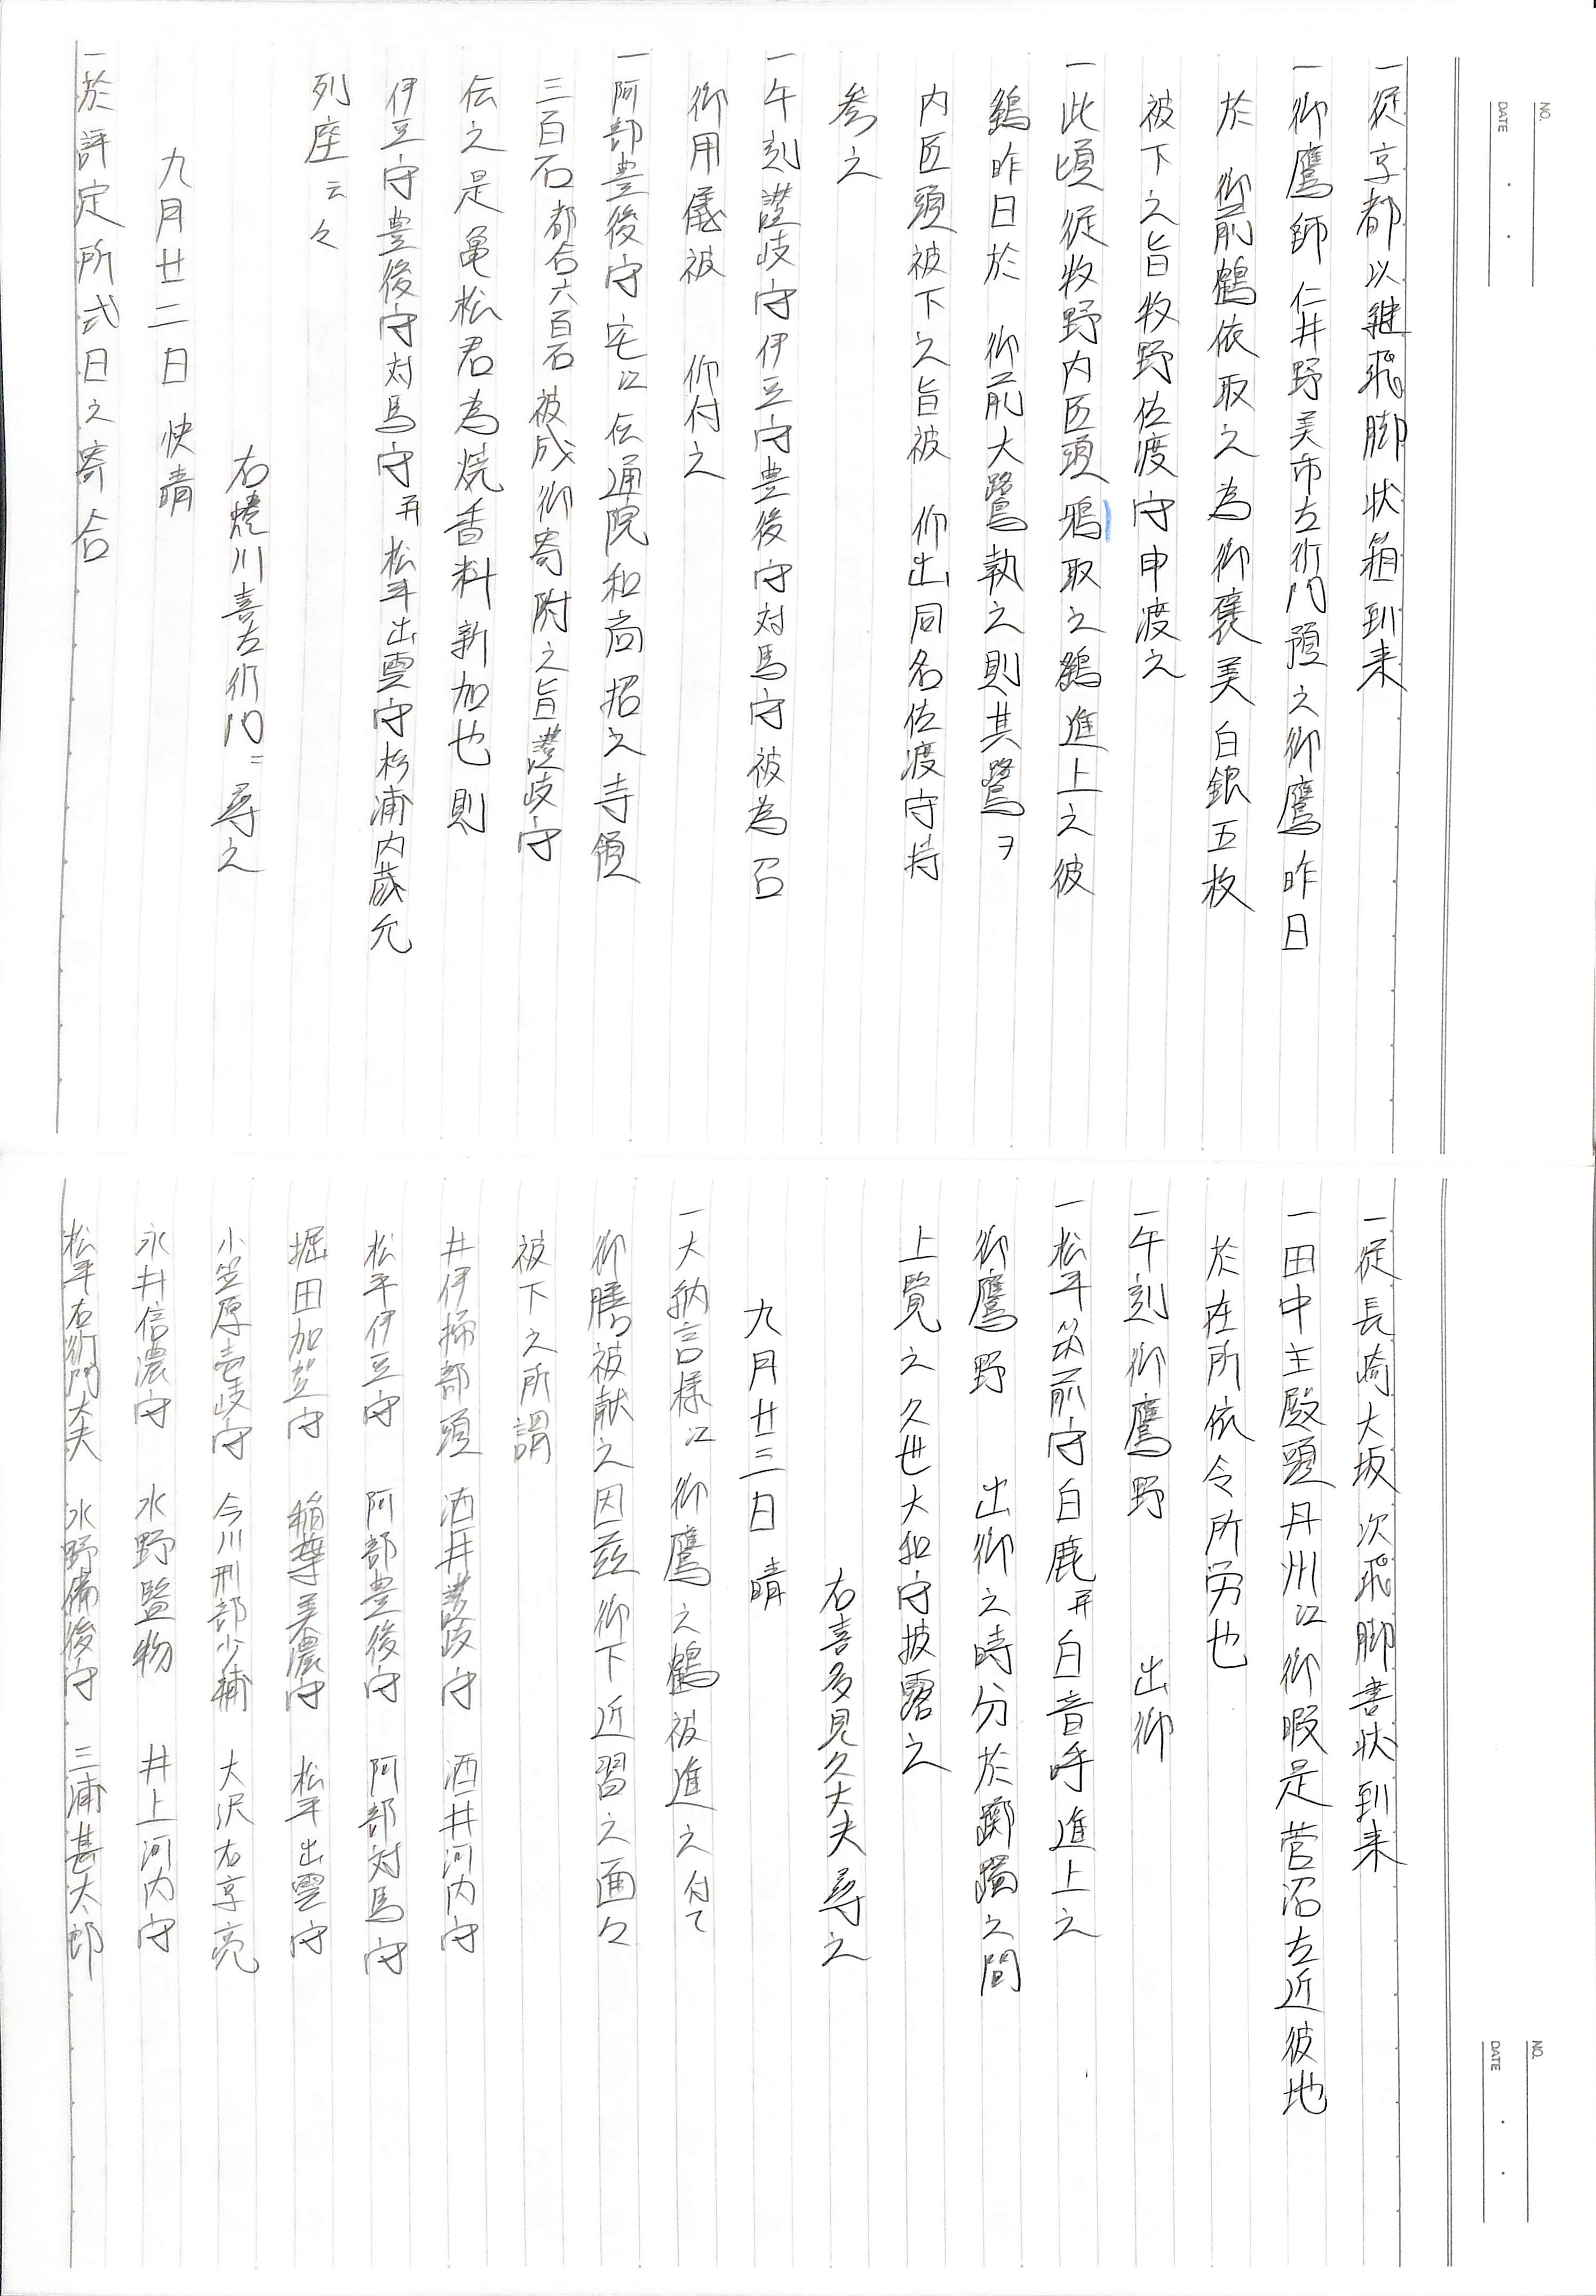 NO.
DATE
一従京都以継飛脚状箱到来
一御鷹師仁井野美市左衛門預之御鷹昨日
於 御前鶴依取之為御褒美白銀五枚
被下之旨牧野佐渡守申渡之
一此頃従牧野内匠頭鴉取之鷂進上之彼
鷂昨日於 御前大鷺執之則其鷺ヲ
内匠頭被下之旨被 仰出同名佐渡守持
参之
一午刻讃岐守伊豆守豊後守対馬守被為召
御用儀被 仰付之
一阿部豊後守宅江伝通院和尚招之寺領
三百石都合六百石被成御寄附之旨讃岐守
伝之是亀松君為焼香料新加也則
伊豆守豊後守対馬守并松平出雲守杉浦内蔵允
列座云々
右蜷川喜左衛門ニ尋之
九月廿二日 快晴
一於評定所式日之寄合
NO.
DATE
一従長崎大坂次飛脚書状到来
一田中主殿頭丹州江御暇是菅沼左近彼地
於在所依令所労也
一午刻御鷹野 出御
一松平筑前守白鹿并白音呼進上之
御鷹野 出御之時分於躑躅之間
上覧之久世大和守披露之
右喜多見久大夫尋之
九月廿三日 晴
一大納言様江御鷹之鶴被進之付て
御膳被献之因茲御下近習之面々
被下之所謂
井伊掃部頭 酒井讃岐守 酒井河内守
松平伊豆守 阿部豊後守 阿部対馬守
堀田加賀守 稲葉美濃守 松平出雲守
小笠原壱岐守 今川刑部少輔 大沢右京亮
永井信濃守 水野監物 井上河内守
松平右衛門大夫 水野備後守 三浦甚太郎